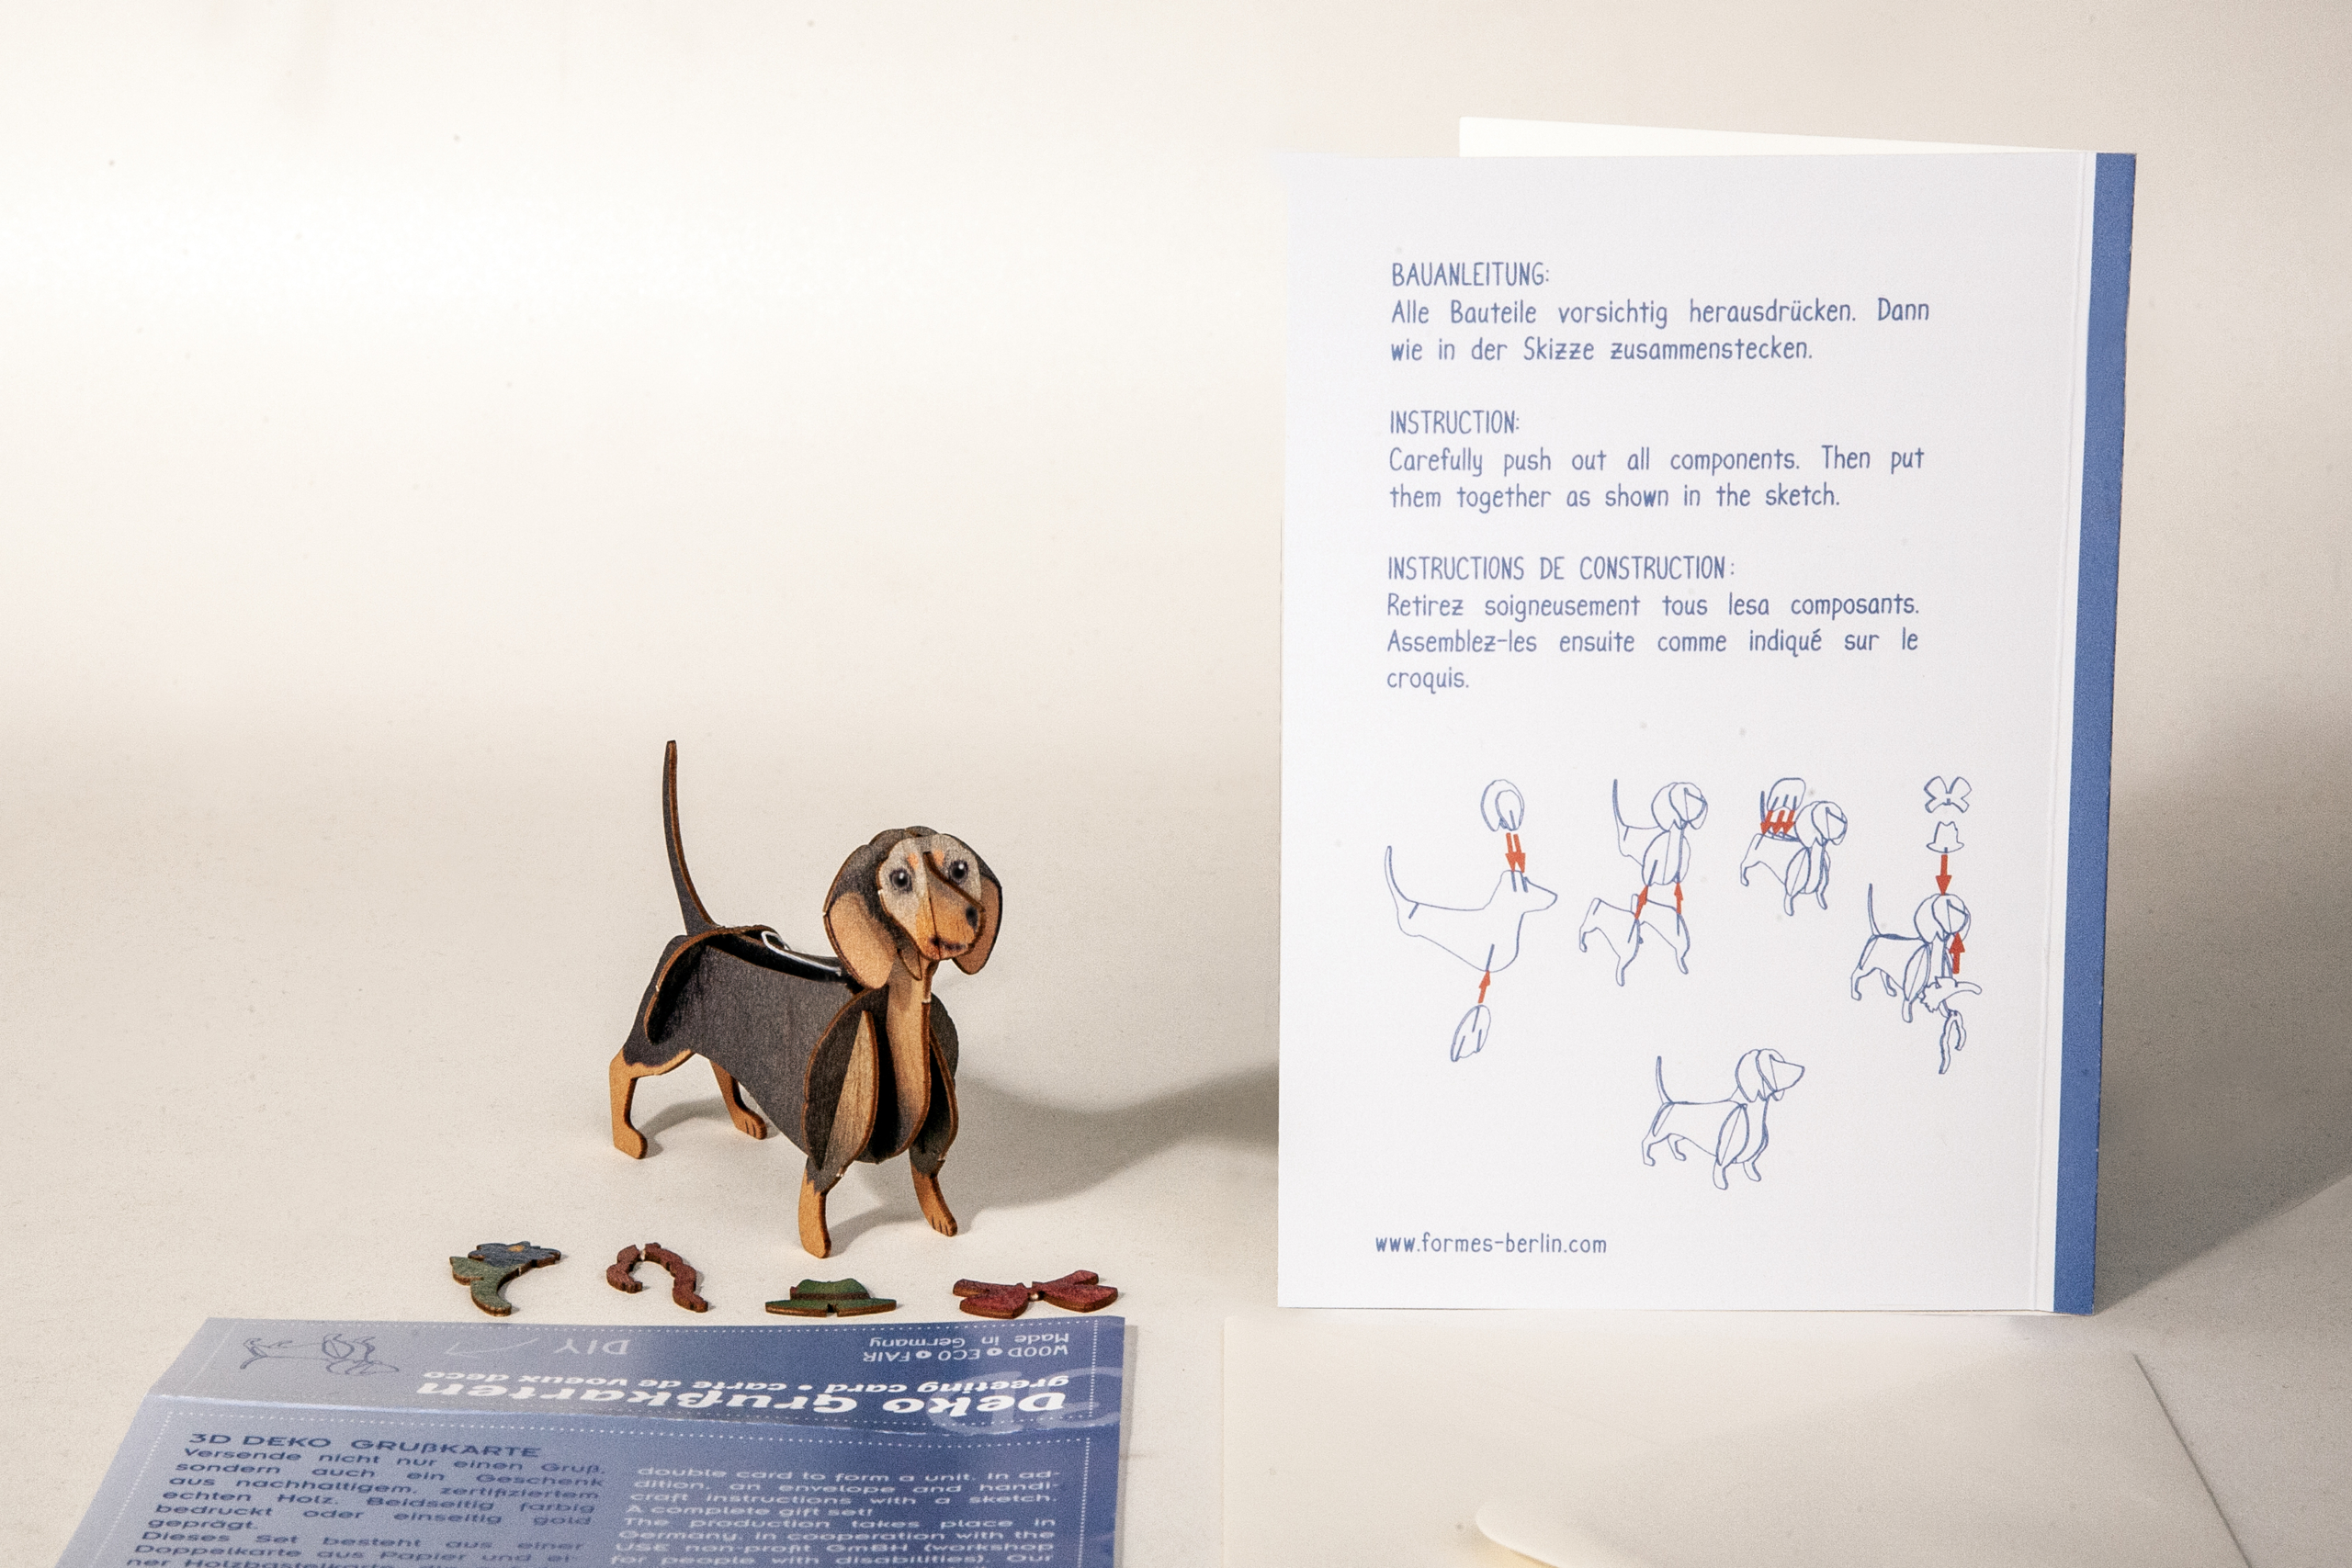 BAUANLEITUNG:
Alle Bauteile vorsichtig herausdrücken. Dann
wie in der Skizze zusammenstecken.
INSTRUCTION:
Carefully push out all components. Then put
them together as shown in the sketch.
INSTRUCTIONS DE CONSTRUCTION:
Retirez soigneusement tous lesa composants.
Assemblez-les ensuite comme indiqué sur le
croquis.
www.formes-berlin.com
Deko Grußkarten
greeting card • carte de voeux deco
WOOD ● ECO ● FAIR
Made in Germany
DIY
3D DEKO GRUßKARTE
Versende nicht nur einen Gruß,
sondern auch ein Geschenk
aus nachhaltigem, zertifiziertem
echten Holz. Beidseitig farbig
bedruckt oder einseitig gold
geprägt.
Dieses Set besteht aus einer
Doppelkarte aus Papier und ei-
ner Holzbastelkarte
double card to form a unit. In ad-
dition, an envelope and handi-
craft instructions with a sketch.
A complete gift set!
The production takes place in
Germany, in cooperation with the
USE non-profit GmBH (workshop
for people with disabilities). Our